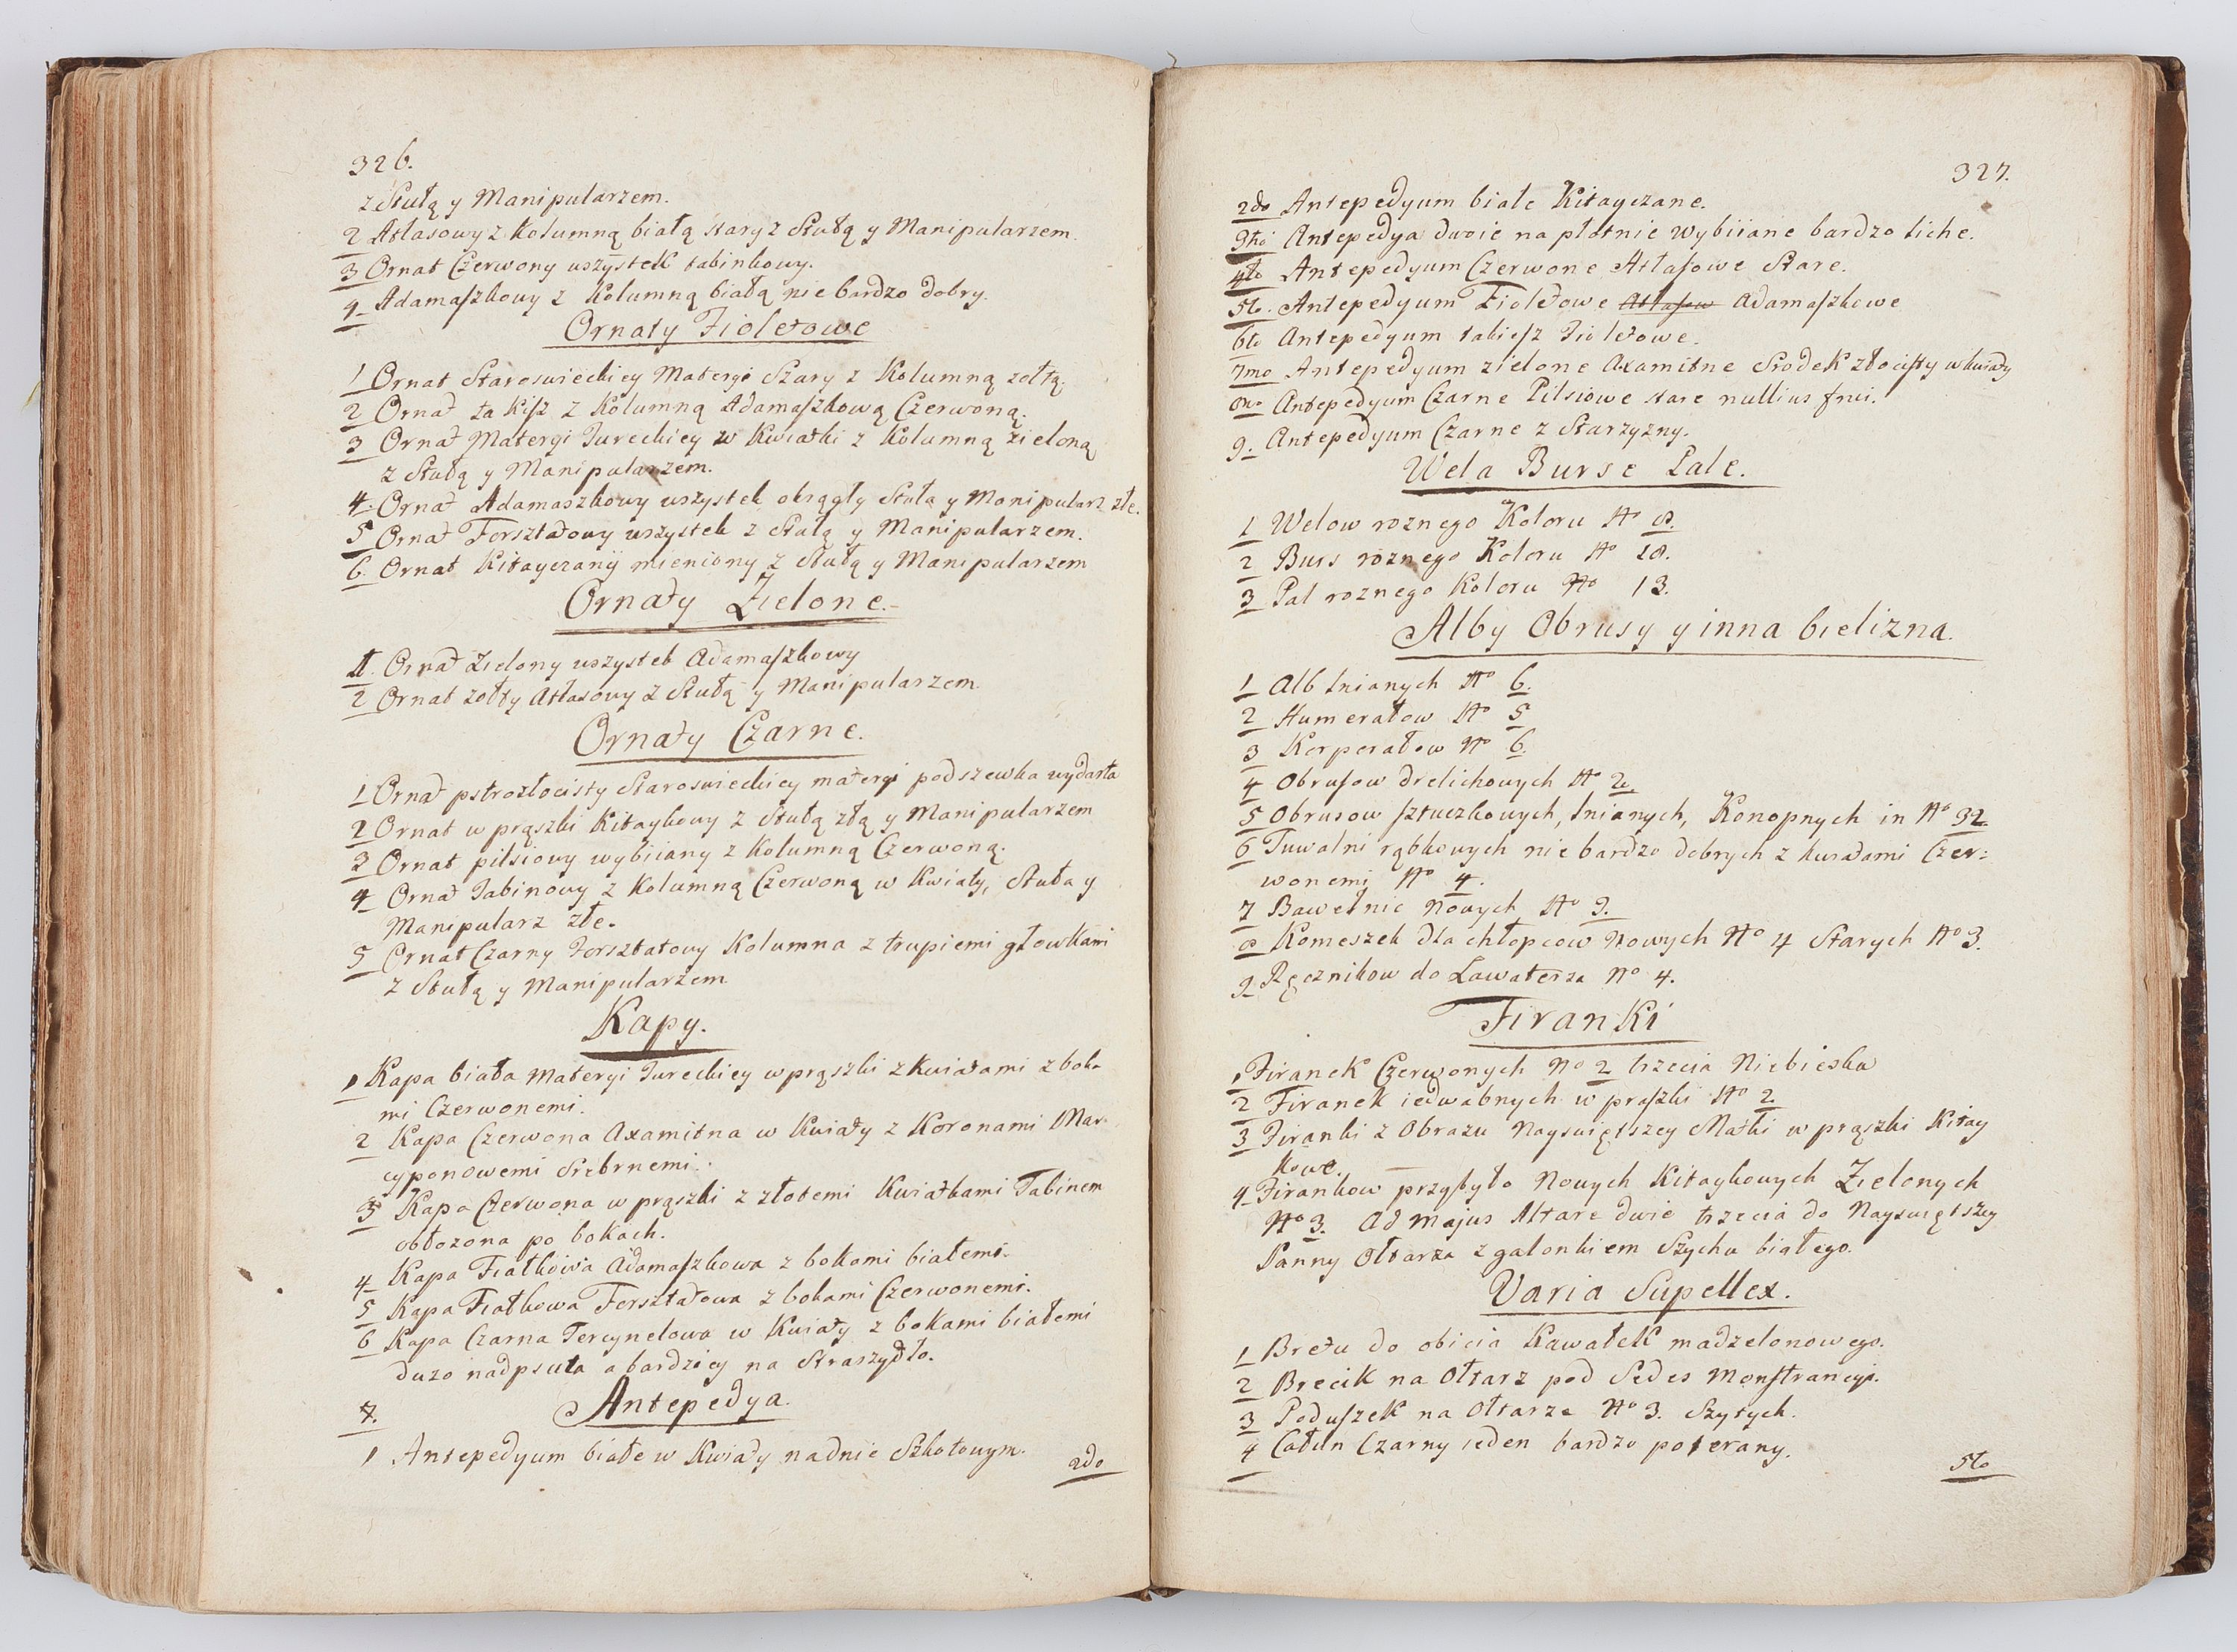 326.
z Stułą y Manipularzem.
2 Atlasowy z Kolumną białą stary z Stułą y Manipularzem.
3 Ornat Czerwony wszystek tabinkowy.
4 Adamaszkowy z Kolumną białą nie bardzo dobry.
Ornaty Fioletowe
1 Ornat Staroswieckiey Materyi Szary z Kolumną zołtą.
2 Ornat takisz z Kolumną Adamaszkową Czerwoną.
3 Ornat Materyi Tureckiey w Kwiatki z Kolumną zieloną
z Stułą y Manipularzem.
4. Ornat Adamaszkowy wszystek okrągły Stuła y Manipularz złe.
5 Ornat Forsztatowy wszystek z Stułą y Manipularzem.
6. Ornat Kitayczany mieniony z Stułą y Manipularzem
Ornaty Zielone.
1. Ornat Zielony wszystek Adamaszkowy
2 Ornat zołty Atlasowy z Stułą y Manipularzem.
Ornaty Czarne.
1 Ornat pstrozłocisty Staroswieckiey materyi podszewka wydarta
2 Ornat w prąszki Kitaykowy z Stułą złą y Manipularzem
3 Ornat pilsiowy wybiiany z Kolumną Czerwoną.
4 Ornat Tabinowy z Kolumną Czerwoną w Kwiaty, Stuła y
Manipularz złe.
5 Ornat Czarny Forsztatowy Kolumna z trupiemi głowkami
z Stułą y Manipularzem
Kapy.
1 Kapa biała Materyi Tureckiey w prąszki z Kwiatami z boka
mi Czerwonemi.
2 Kapa Czerwona Axamitna w Kwiaty z Koronami Mar
cyponowemi Srebrnemi.
3 Kapa Czerwona w prąszki z złotemi Kwiatkami Tabinem
obłozona po bokach.
4 Kapa Fiałkowa Adamaszkowa z bokami białemi.
5 Kapa Fiałkowa Forsztatowa z bokami Czerwonemi.
6 Kapa Czarna Tercynelowa w Kwiaty z bokami białemi
duzo nadpsuta a bardziey na Straszydło.
7.
Antepedya.
1 Antepedyum białe w Kwiaty nadnie Szkołowym.
2do
327.
2do Antepedyum białe Kitayczane.
3tio Antepedya dwoie na płotnie wybiiane bardzo liche.
4to Antepedyum Czerwone Atlasowe Stare.
5to. Antepedyum Fioletowe Atlasow Adamaszkowe
6to Antepedyum takiesz Fioletowe.
7mo Antepedyum zielone Axamitne Srodek złocisty w kwiaty
8vo Antepedyum Czarne Pilsiowe stare nullius
9. Antepedyum Czarne z Starzyzny.
Wela Burse Pale.
1 Welow roznego Koloru No 8.
2 Burs roznego Koloru No 18.
3 Pal roznego Koloru No 13.
Alby Obrusy y inna bielizna.
1 Alb lnianych No 6.
2 Humerałow No 5
3 Korporałow No 6.
4 Obrusow drelichowych No 2.
5 Obrusow sztuczkowych, lnianych, Konopnych in No 32
6 Tuwalni rąbkowych nie bardzo dobrych z kutasami Czer=
wonemi No 4.
7 Bawełnic Nowych No 9.
8 Komeszek dla chłopcow Nowych No 4 Starych No 3.
9 Ręcznikow do Lawaterza No 4.
Firanki
1 Firanek Czerwonych No 2 trzecia Niebieska
2 Firanek iedwabnych w prąszki No 2
3 Firanki z Obrazu Nayswiętszey Matki w prąszki Kitay
kowe.
4 Firankow przybyło Nowych Kitaykowych Zielonych
No 3. Ad majus Altare dwie trzecia do Nayswiętszey
Panny Ołtarza z galonkiem Szychu białego.
Varia Supellex.
1 Bretu do obicia Kawałek madzelonowego.
2 Brecik na Ołtarz pod Sedes Monstrancyi.
3 Poduszek na Ołtarze No 3. Szytych.
4 Całun Czarny ieden bardzo poterany.
5to